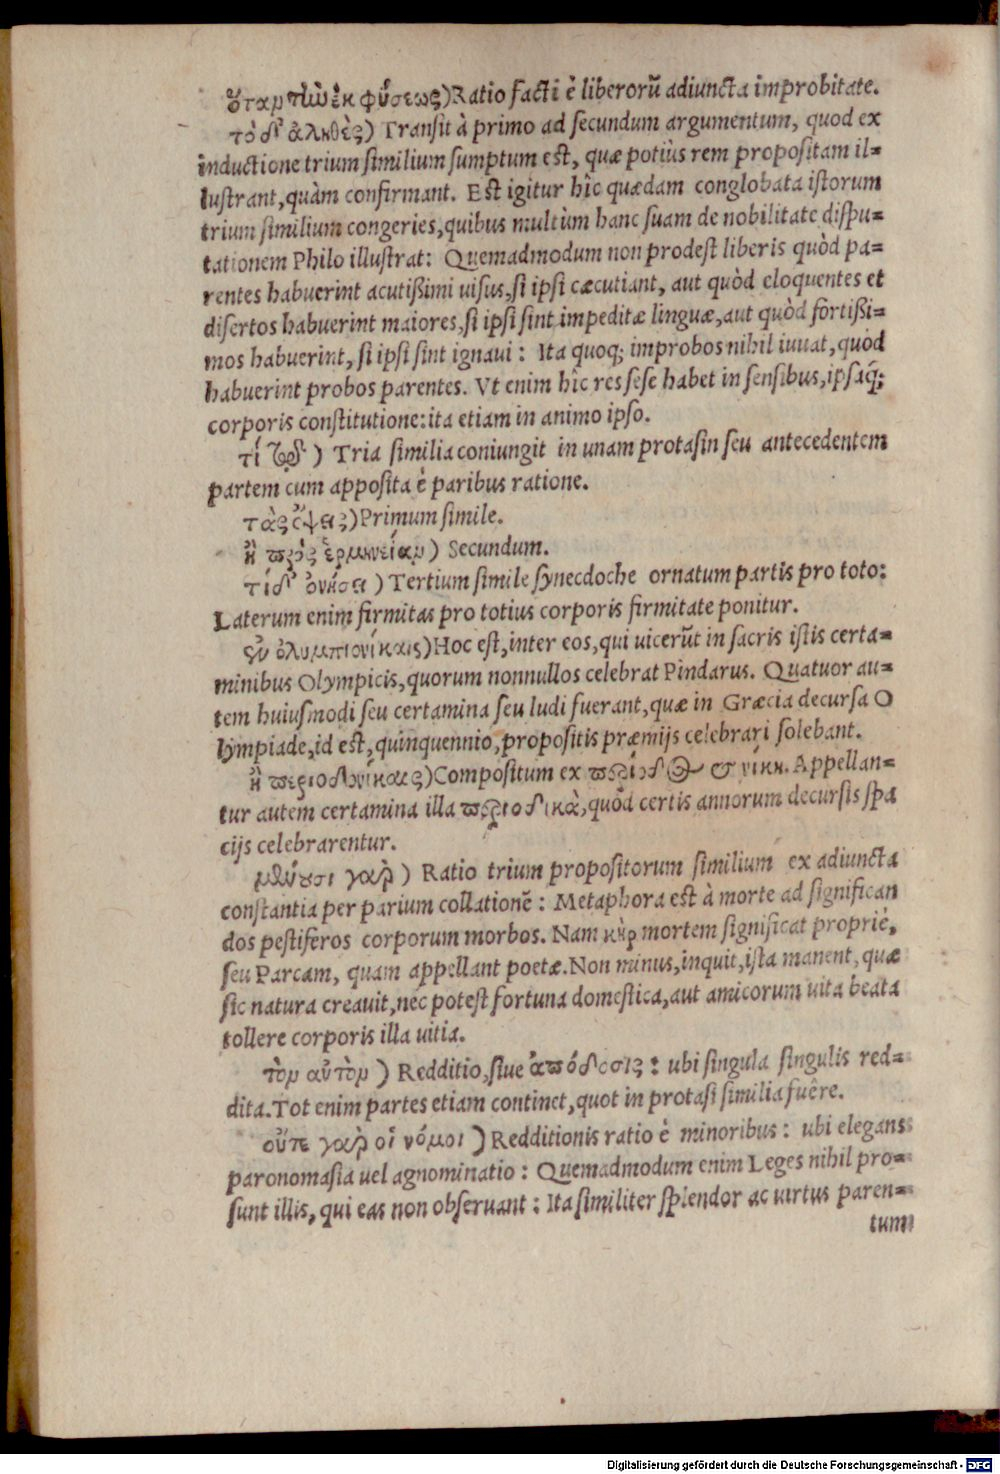 ὅταν τὴν ἐκ φύσεως) Ratio facti è liberorũ adiuncta improbitate.
τὸ δ' ἀληθὲς) Transit à primo ad secundum argumentum, quod ex
inductione trium similium sumptum est, quæ potiùs rem propositam il=
lustrant, quàm confirmant. Est igitur hîc quædam conglobata istorum
trium similium congeries, quibus multùm hanc suam de nobilitate dispu=
tationem Philo illustrat: Quemadmodum non prodest liberis quòd pa=
rentes habuerint acutißimi uisus, si ipsi cæcutiant, aut quòd eloquentes et
disertos habuerint maiores, si ipsi sint impeditæ linguæ, aut quòd fortißi=
mos habuerint, si ipsi sint ignaui: Ita quoq; improbos nihil iuuat, quòd
habuerint probos parentes. Vt enim hîc res sese habet in sensibus, ipsaq́;
corporis constitutione: ita etiam in animo ipso.
τί γδ) Tria similia coniungit in unam protasin seu antecedentem
partem cum apposita è paribus ratione.
τὰς ὄψεις) Primum simile.
ἢ πρὸς ἑρμηνείαν) Secundum.
τί δ' ὀνήσει) Tertium simile synecdoche ornatum partis pro toto:
Laterum enim firmitas pro totius corporis firmitate ponitur.
ἐν ὀλυμπιονίκαις) Hoc est, inter eos, qui uicerũt in sacris istis certa=
minibus Olympicis, quorum nonnullos celebrat Pindarus. Quatuor au=
tem huiusmodi seu certamina seu ludi fuerant, quæ in Græcia decursa O
lympiade, id est, quinquennio, propositis præmijs celebrari solebant.
ἢ περιοδονίκαις) Compositum ex περίοδος & νίκη. Appellan=
tur autem certamina illa περιοδικὰ, quòd certis annorum decursis spa
cijs celebrarentur.
μένουσι γὰρ) Ratio trium propositorum similium ex adiuncta
constantia per parium collationẽ: Metaphora est à morte ad significan
dos pestiferos corporum morbos. Nam κὴρ mortem significat propriè,
seu Parcam, quam appellant poetæ. Non minus, inquit, ista manent, quæ
sic natura creauit, nec potest fortuna domestica, aut amicorum uita beata
tollere corporis illa uitia.
τὸν αὐτὸν) Redditio, siue ἀπόδοσις: ubi singula singulis red=
dita. Tot enim partes etiam continet, quot in protasi similia fuêre.
οὔτε γὰρ οἱ νόμοι) Redditionis ratio è minoribus: ubi elegans
paronomasia uel agnominatio: Quemadmodum enim Leges nihil pro=
sunt illis, qui eas non obseruant: Ita similiter splendor ac uirtus paren=
tum
Digitalisierung gefördert durch die Deutsche Forschungsgemeinschaft - DFG